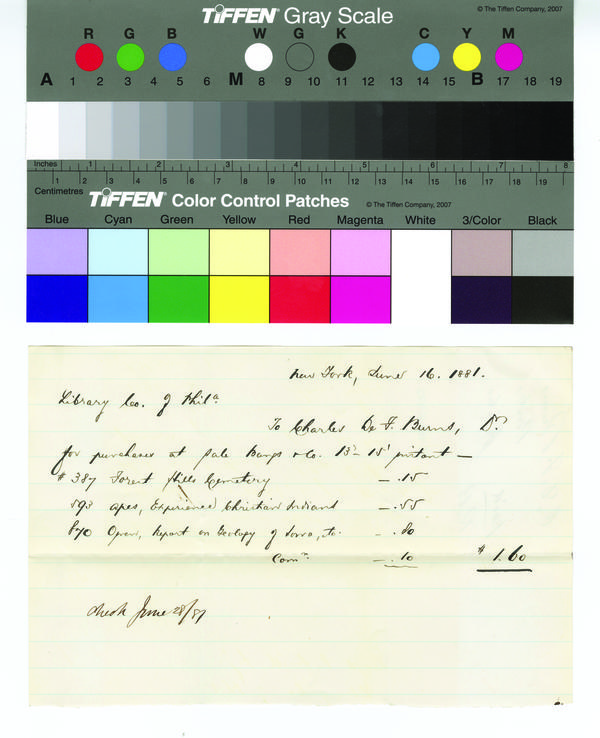 TIFFEN® Gray Scale
© The Tiffen Company, 2007
R G B W G K C Y M
A 1 2 3 4 5 6 M 8 9 10 11 12 13 14 15 B 17 18 19
Inches 1 2 3 4 5 6 7 8
1 2 3 4 5 6 7 8 9 10 11 12 13 14 15 16 17 18 19
Centimetres
TIFFEN® Color Control Patches
© The Tiffen Company, 2007
Blue Cyan Green Yellow Red Magenta White 3/Color Black
New York, June 16. 1881.
Library Co. of Phila.
To Charles De F. Burns, Dr.
for purchases at sale Bangs & Co. 13- 15 instant —
# 387 Forest Hills Cemetery — .15
593 Apes, Experience Christian Indians — .55
870 Owen, Report on Geology of Iowa, &c. - .80
Comn — .10 $ 1.60
check June 28/81